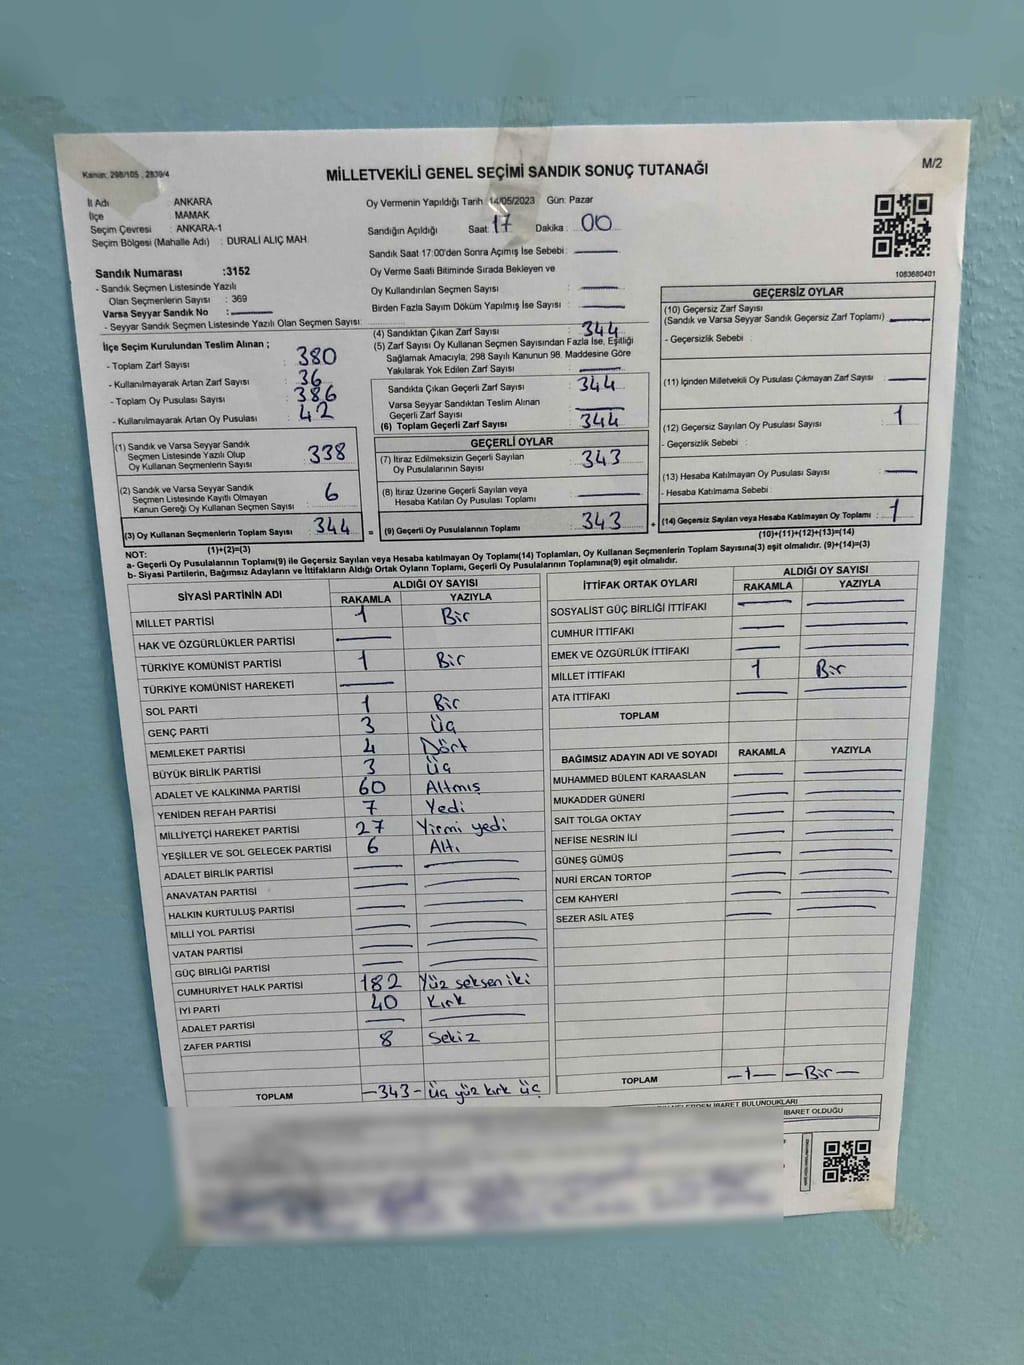 Kanun: 298/105 , 2839/4
MİLLETVEKİLİ GENEL SEÇİMİ SANDIK SONUÇ TUTANAĞI
M/2
İl Adı : ANKARA
İlçe : MAMAK
Seçim Çevresi : ANKARA-1
Seçim Bölgesi (Mahalle Adı) : DURALİ ALIÇ MAH.
Oy Vermenin Yapıldığı Tarih : 14/05/2023 Gün: Pazar
Sandığın Açıldığı Saat: 17 Dakika : 00
Sandık Saat 17:00'den Sonra Açımış İse Sebebi:
Oy Verme Saati Bitiminde Sırada Bekleyen ve
Oy Kullandırılan Seçmen Sayısı :
Birden Fazla Sayım Döküm Yapılmış İse Sayısı :
1083680401
Sandık Numarası :3152
- Sandık Seçmen Listesinde Yazılı
Olan Seçmenlerin Sayısı : 369
Varsa Seyyar Sandık No :
- Seyyar Sandık Seçmen Listesinde Yazılı Olan Seçmen Sayısı:
İlçe Seçim Kurulundan Teslim Alınan ;
- Toplam Zarf Sayısı : 380
- Kullanılmayarak Artan Zarf Sayısı : 36
- Toplam Oy Pusulası Sayısı : 386
- Kullanılmayarak Artan Oy Pusulası : 42
(1) Sandık ve Varsa Seyyar Sandık
Seçmen Listesinde Yazılı Olup
Oy Kullanan Seçmenlerin Sayısı : 338
(2) Sandık ve Varsa Seyyar Sandık
Seçmen Listesinde Kayıtlı Olmayan
Kanun Gereği Oy Kullanan Seçmen Sayısı : 6
(3) Oy Kullanan Seçmenlerin Toplam Sayısı : 344
(1)+(2)=(3)
(4) Sandıktan Çıkan Zarf Sayısı : 344
(5) Zarf Sayısı Oy Kullanan Seçmen Sayısından Fazla İse, Eşitliği
Sağlamak Amacıyla, 298 Sayılı Kanunun 98. Maddesine Göre
Yakılarak Yok Edilen Zarf Sayısı :
Sandıkta Çıkan Geçerli Zarf Sayısı : 344
Varsa Seyyar Sandıktan Teslim Alınan
Geçerli Zarf Sayısı :
(6) Toplam Geçerli Zarf Sayısı : 344
GEÇERLİ OYLAR
(7) İtiraz Edilmeksizin Geçerli Sayılan
Oy Pusulalarının Sayısı : 343
(8) İtiraz Üzerine Geçerli Sayılan veya
Hesaba Katılan Oy Pusulası Toplamı :
= (9) Geçerli Oy Pusulalarının Toplamı : 343
GEÇERSİZ OYLAR
(10) Geçersiz Zarf Sayısı
(Sandık ve Varsa Seyyar Sandık Geçersiz Zarf Toplamı) :
- Geçersizlik Sebebi :
(11) İçinden Milletvekili Oy Pusulası Çıkmayan Zarf Sayısı :
(12) Geçersiz Sayılan Oy Pusulası Sayısı : 1
- Geçersizlik Sebebi :
(13) Hesaba Katılmayan Oy Pusulası Sayısı :
- Hesaba Katılmama Sebebi :
+ (14) Geçersiz Sayılan veya Hesaba Katılmayan Oy Toplamı : 1
(10)+(11)+(12)+(13)=(14)
NOT:
a- Geçerli Oy Pusulalarının Toplamı(9) ile Geçersiz Sayılan veya Hesaba katılmayan Oy Toplamı(14) Toplamları, Oy Kullanan Seçmenlerin Toplam Sayısına(3) eşit olmalıdır. (9)+(14)=(3)
b- Siyasi Partilerin, Bağımsız Adayların ve İttifakların Aldığı Ortak Oyların Toplamı, Geçerli Oy Pusulalarının Toplamına(9) eşit olmalıdır.
SİYASİ PARTİNİN ADI ALDIĞI OY SAYISI
RAKAMLA YAZIYLA
MİLLET PARTİSİ 1 Bir
HAK VE ÖZGÜRLÜKLER PARTİSİ
TÜRKİYE KOMÜNİST PARTİSİ 1 Bir
TÜRKİYE KOMÜNİST HAREKETİ
SOL PARTİ 1 Bir
GENÇ PARTİ 3 Üç
MEMLEKET PARTİSİ 4 Dört
BÜYÜK BİRLİK PARTİSİ 3 Üç
ADALET VE KALKINMA PARTİSİ 60 Altmış
YENİDEN REFAH PARTİSİ 7 Yedi
MİLLİYETÇİ HAREKET PARTİSİ 27 Yirmi yedi
YEŞİLLER VE SOL GELECEK PARTİSİ 6 Altı
ADALET BİRLİK PARTİSİ
ANAVATAN PARTİSİ
HALKIN KURTULUŞ PARTİSİ
MİLLİ YOL PARTİSİ
VATAN PARTİSİ
GÜÇ BİRLİĞİ PARTİSİ
CUMHURİYET HALK PARTİSİ 182 Yüz seksen iki
İYİ PARTİ 40 Kırk
ADALET PARTİSİ
ZAFER PARTİSİ 8 Sekiz
TOPLAM -343- Üç yüz kırk üç
İTTİFAK ORTAK OYLARI ALDIĞI OY SAYISI
RAKAMLA YAZIYLA
SOSYALİST GÜÇ BİRLİĞİ İTTİFAKI
CUMHUR İTTİFAKI
EMEK VE ÖZGÜRLÜK İTTİFAKI
MİLLET İTTİFAKI 1 Bir
ATA İTTİFAKI
TOPLAM
BAĞIMSIZ ADAYIN ADI VE SOYADI RAKAMLA YAZIYLA
MUHAMMED BÜLENT KARAASLAN
MUKADDER GÜNERİ
SAİT TOLGA OKTAY
NEFİSE NESRİN İLİ
GÜNEŞ GÜMÜŞ
NURİ ERCAN TORTOP
CEM KAHYERİ
SEZER ASİL ATEŞ
TOPLAM -1- -Bir-
İBARET BULUNDUKLARI
İBARET OLDUĞU